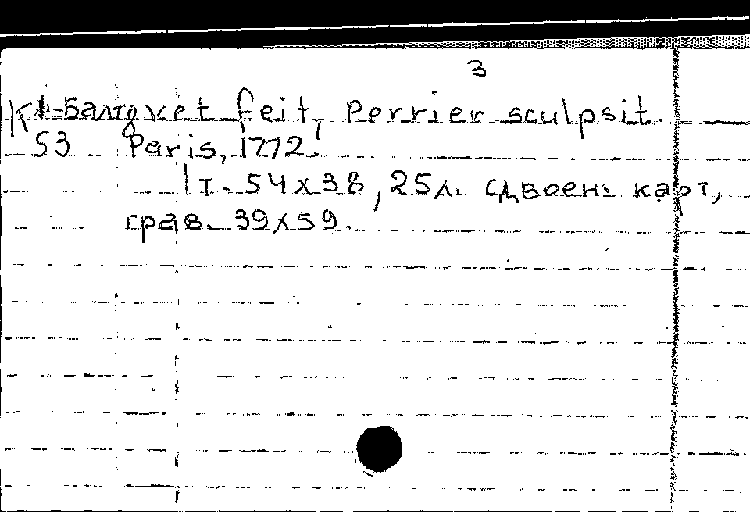 3
К1-Бал feit, Perrier sculpsit.
53 Paris, 1772.
1 т. 54х38, 25л. сдвоен. карт,
грав. 39х59.